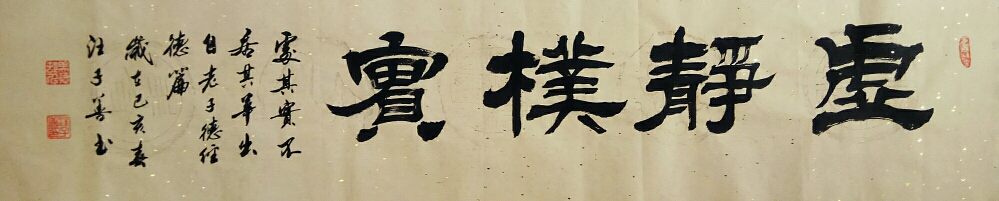 虛靜樸實
處其實不
居其華出
自老子德经
德篇
歲在己亥春
汪善书